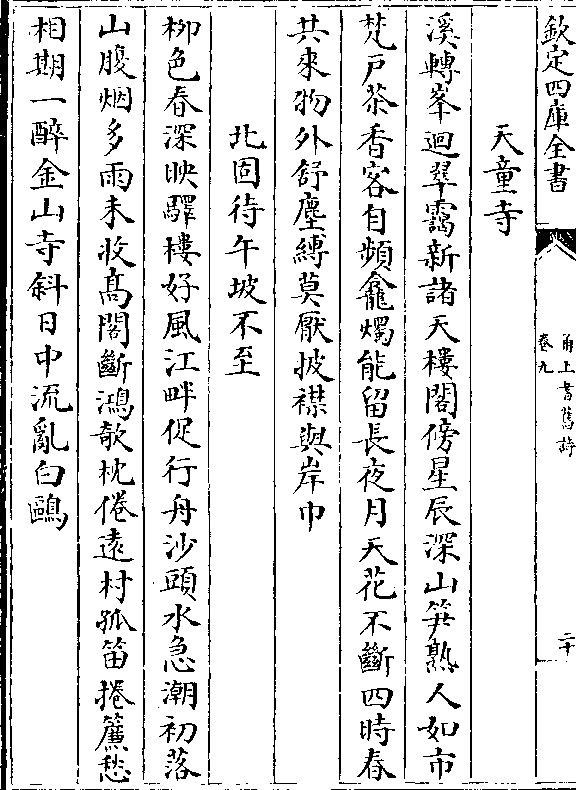 欽定四庫全書
甬上耆舊詩
卷九
二十
天童寺
溪轉峯迴翠靄新諸天樓閣傍星辰深山笋熟人如市
梵戸茶香客自頻龕燭能留長夜月天花不斷四時春
共來物外舒塵縛莫厭披襟與岸巾
北固待午坡不至
柳色春深映驛樓好風江畔促行舟沙頭水急潮初落
山腹烟多雨未收髙閣斷鴻欹枕倦遠村孤笛捲簾愁
相期一醉金山寺斜日中流亂白鷗